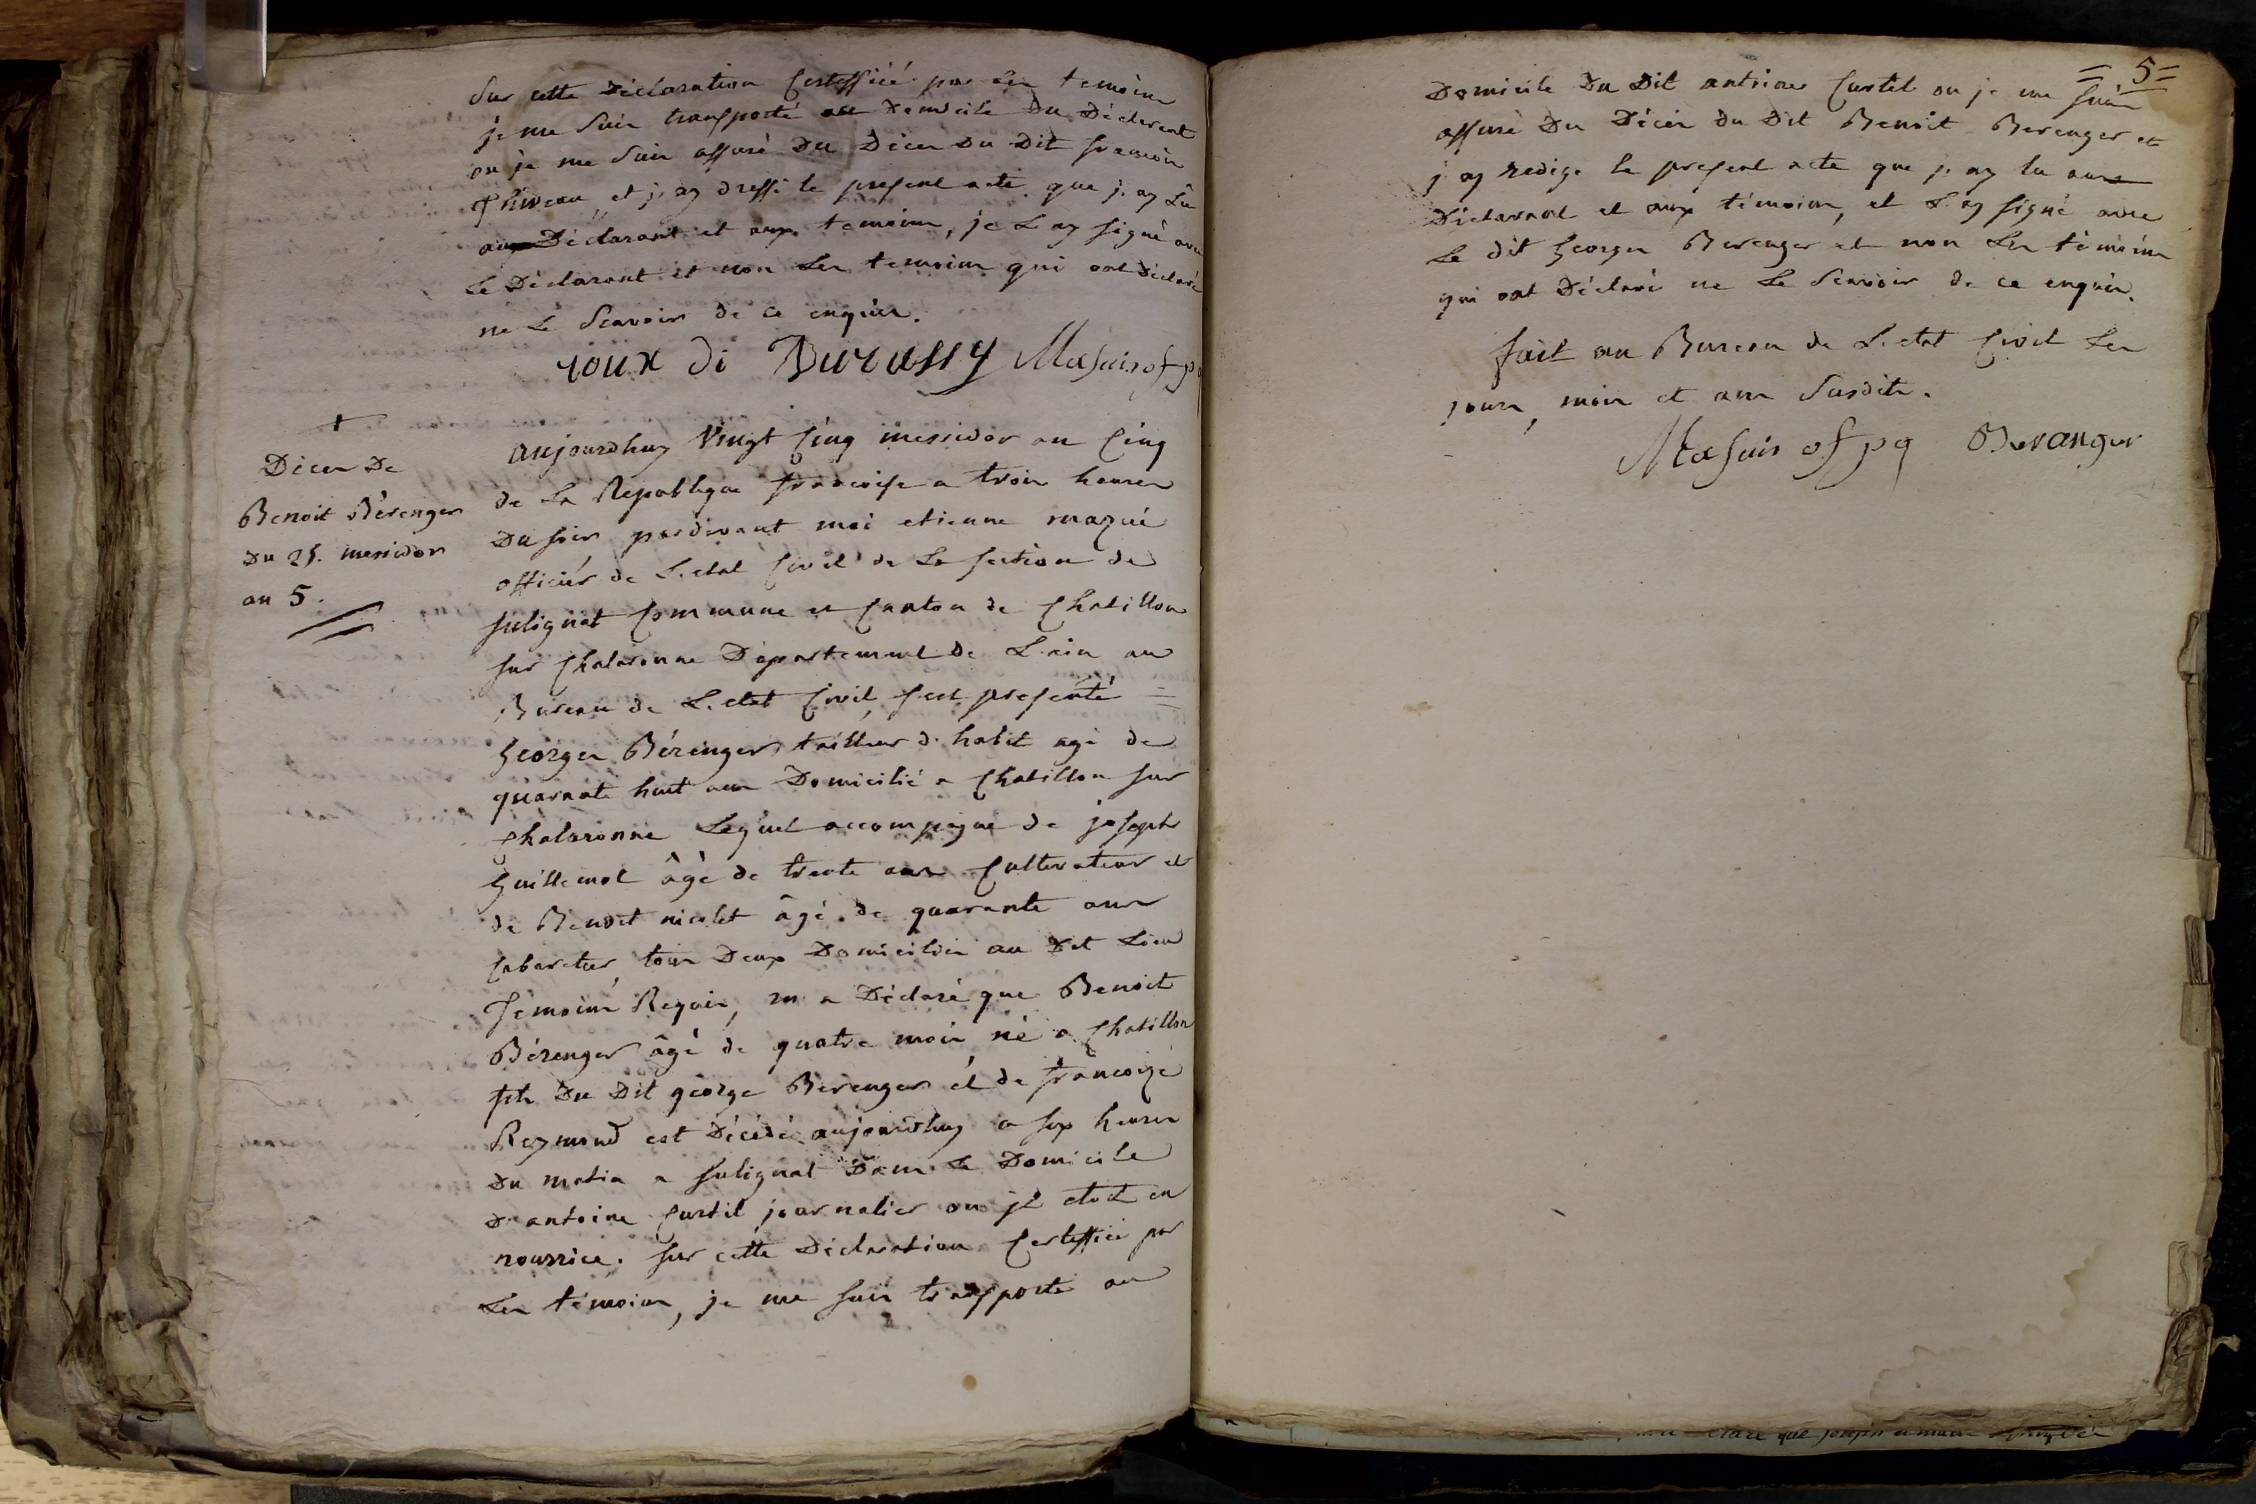 Sur cette Déclaration Certiffiéé par Les temoins
je me suis transporté au Domicile Du Déclarent
ou je me suis assuré Du Décès Du Dit françois
Thiveau, et j. ay dressé le present acte que j. ay Lu
au Déclarant et aux temoins, je L ay signé avec
Le Déclarant et non Les temoins qui ont Déclaré
ne Le Scavoir de ce enquis.
roux di Burassy Masuis of pq
+
Décès De
Benoit Bérenger
Du 25. messidor
an 5.
aujourdhuy Vingt Cinq messidor an Cinq
de La Republique francoise a trois heures
Du soir pardevant moi etienne mazué
officiér de L.etat Civil de La section de
sulignat Commune et Canton de Chatillon
sur Chalaronne Departement de L.ain au
Bureau de L.etat Civil, s'est presenté =
George Bérenger tailleur d. habit agé de
quarante huit ans Domicilié a Chatillon sur
Chalaronne Lequel accompagné de joseph
Guillemot âgé de trente ans Cultivateur et
de Benoit nicolet âgé. de quarante ans
Cabaretier, tous Deux Domiciliés au Dit Lieu
Témoins Requis, m a Déclaré que Benoit
Bérenger âgé de quatre mois né a Chatillon
fils Du Dit george Berenger et de francoize
Reymond est Décédé aujourdhuy a six heures
Du matin a Sulignat Dans Le Domicile
D. antoine Curtil journalier ou jl etoit en
nourrice. sur cette Déclaration Certiffiéé par
Les témoins, je me suis transporté au
= 5 =
Domicile Du Dit antoine Curtel ou je me suis
assuré Du Décès du Dit Benoit Berenger et
j ay redigé le present acte que j. ay lu au
Déclarant et aux témoins, et L. ay signé avec
Le dit George Berenger et non Les témoins
qui ont Déclaré ne Le Scavoir de ce enquis.
fait au Bureau de L.etat Civil Les
jours, mois et ans Susdits.
Masuis of pq Beranger
que joseph